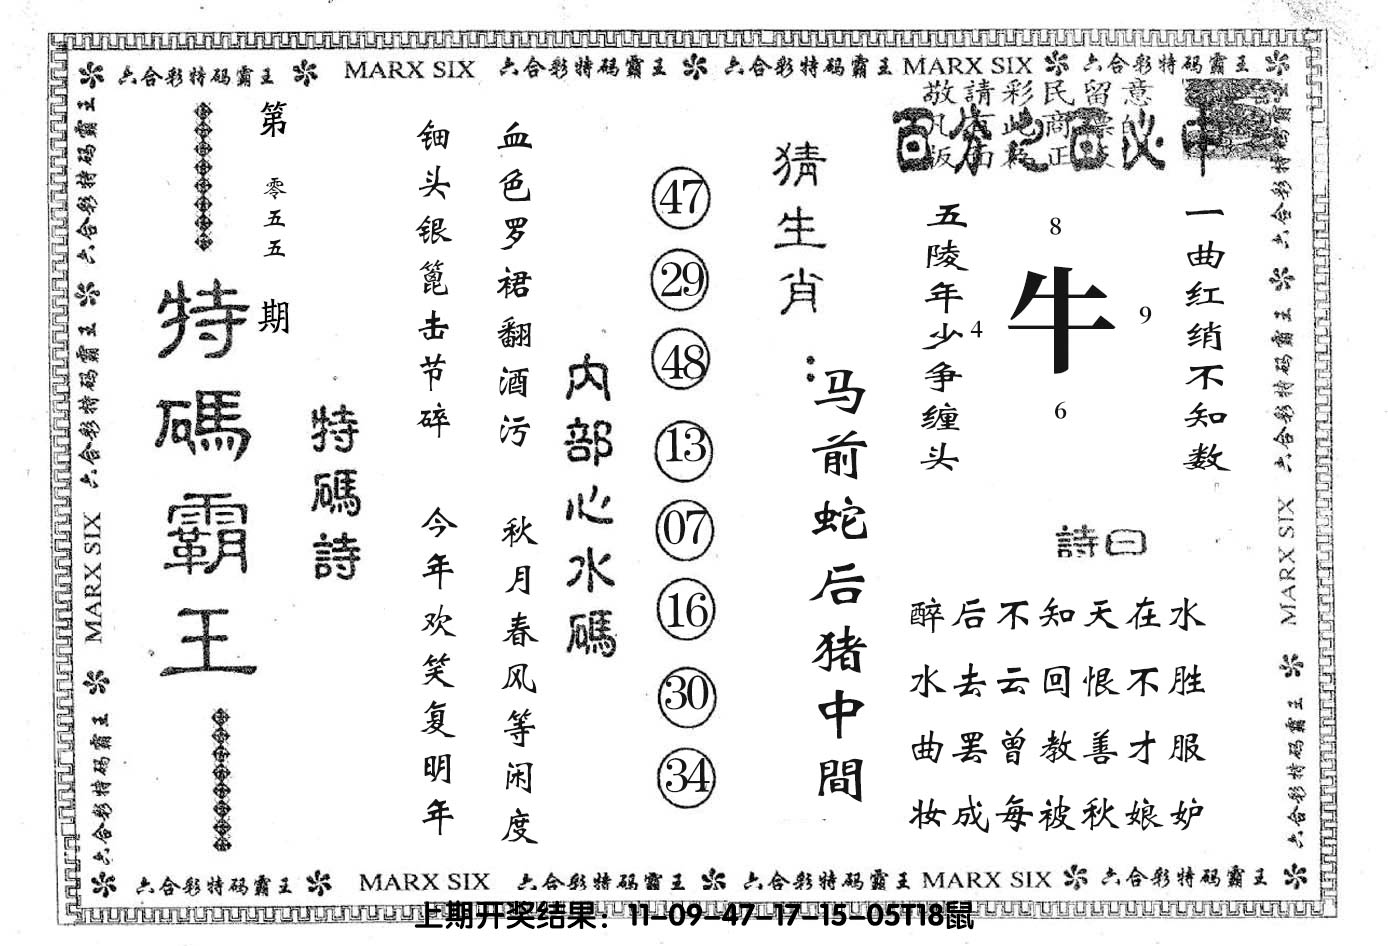 六合彩特码霸王 MARX SIX 六合彩特码霸王 六合彩特码霸王 MARX SIX 六合彩特码霸王
敬請彩民留意
百分之百必中
一曲红绡不知数
8
4
牛
9
6
五陵年少争缠头
詩曰
醉后不知天在水
水去云回恨不胜
曲罢曾教善才服
妆成每被秋娘妒
猜生肖：
马前蛇后猪中間
47
29
48
13
07
16
30
34
内部心水碼
血色罗裙翻酒污
秋月春风等闲度
钿头银篦击节碎
今年欢笑复明年
特碼詩
第零五五期
特碼霸王
六合彩特码霸王 六合彩特码霸王 MARX SIX 六合彩特码霸王
六合彩特码霸王 六合彩特码霸王 MARX SIX 六合彩特码霸王
六合彩特码霸王 MARX SIX 六合彩特码霸王 六合彩特码霸王 MARX SIX 六合彩特码霸王
上期开奖结果：11-09-47-17-15-05T18鼠